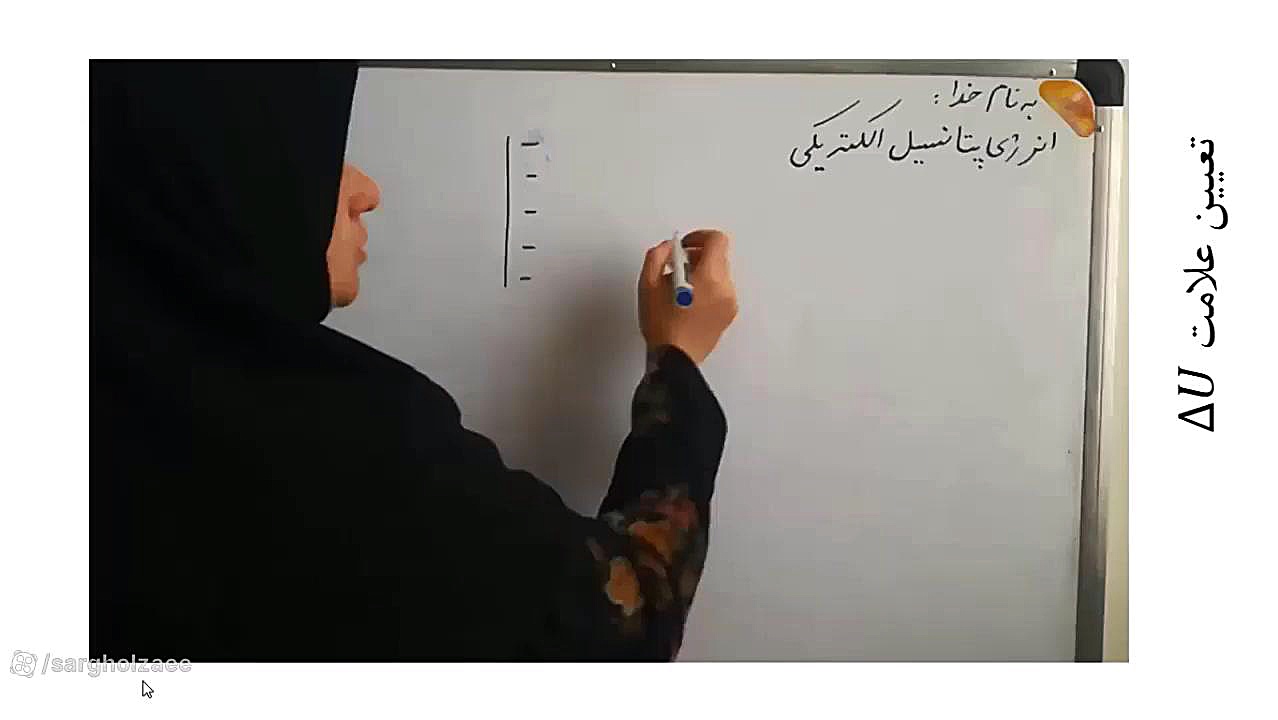 به نام خدا :
انرژی پتانسیل الکتریکی
تعیین علامت ΔU
/sargholzaee